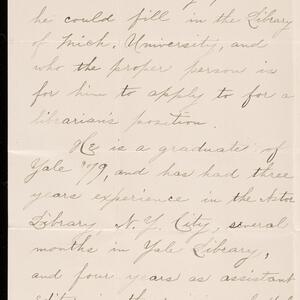 he could fill in the Library
of Mich. University, and
who the proper person is
for him to apply to for a
librarian's position.
He is a graduate of
Yale '79, and has had three
years experience in the Astor
Library, N. Y. City, several
months in Yale Library,
and four years as assistant